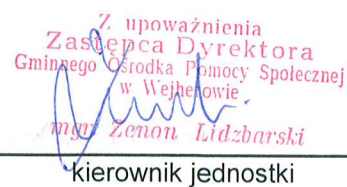 Z upoważnienia
Zastępca Dyrektora
Gminnego Ośrodka Pomocy Społecznej
w Wejherowie
mgr Zenon Lidzbarski
kierownik jednostki